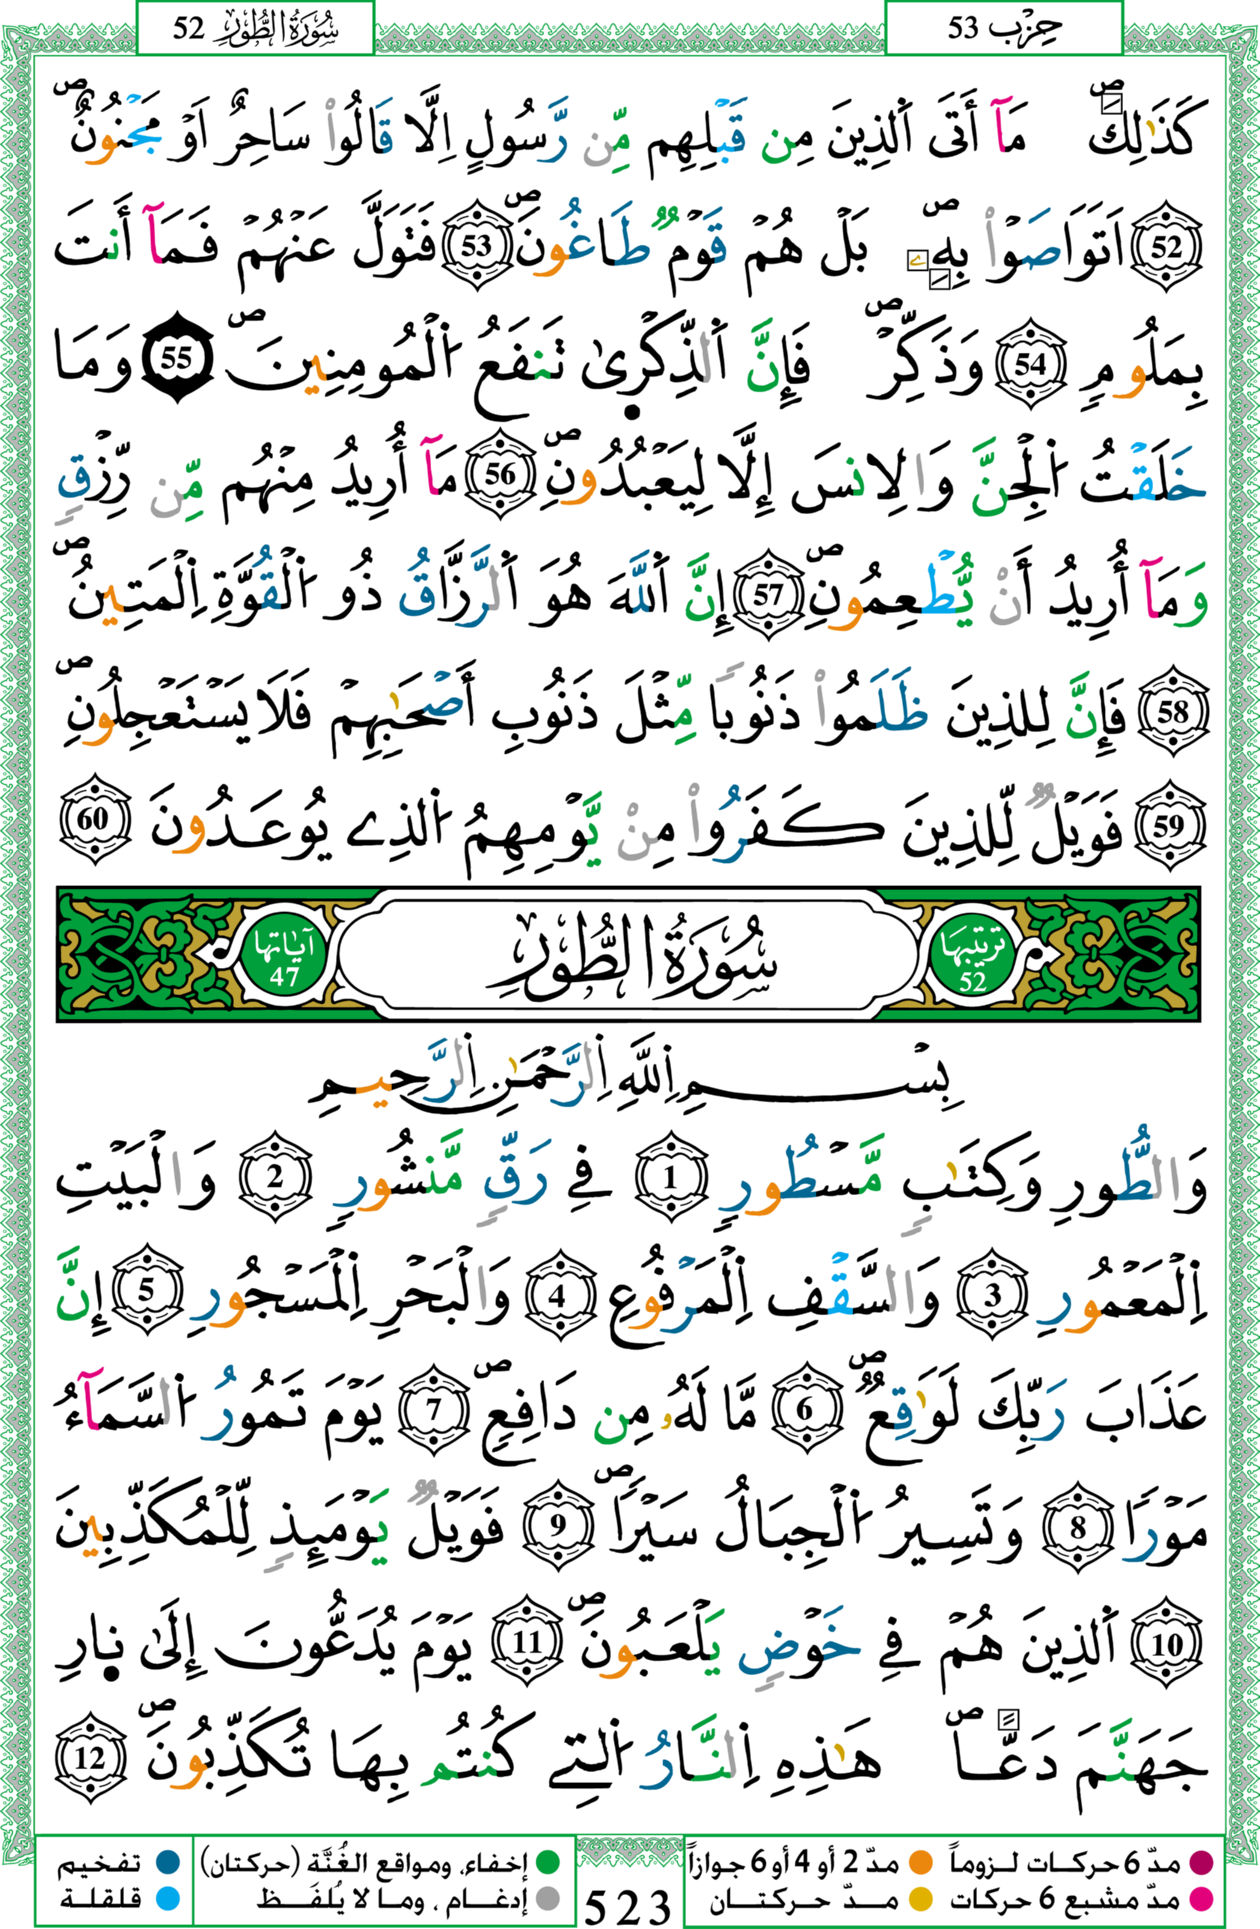 حِزْب 53
سُورَةُ الطُّورِ 52
كَذَٰلِكَۖ مَآ أَتَى اَ۬لذِينَ مِن قَبْلِهِم مِّن رَّسُولٍ اِلَّا قَالُواْ سَاحِرٌ اَوْ مَجْنُونٌۖ
52 اَتَوَاصَوْاْ بِهِۦۖ بَلْ هُمْ قَوْمٞ طَاغُونَۖ 53 فَتَوَلَّ عَنْهُمْ فَمَآ أَنتَ
بِمَلُومٍ 54 وَذَكِّرْۖ فَإِنَّ اَ۬لذِّكْر۪ىٰ تَنفَعُ اُ۬لْمُومِنِينَۖ 55 وَمَا
خَلَقْتُ اُ۬لْجِنَّ وَالِانسَ إِلَّا لِيَعْبُدُونِۖ 56 مَآ أُرِيدُ مِنْهُم مِّن رِّزْقٖ
وَمَآ أُرِيدُ أَنْ يُّطْعِمُونِۖ 57 إِنَّ اَ۬للَّهَ هُوَ اَ۬لرَّزَّاقُ ذُو اُ۬لْقُوَّةِ اِ۬لْمَتِينُۖ
58 فَإِنَّ لِلذِينَ ظَلَمُواْ ذَنُوباٗ مِّثْلَ ذَنُوبِ أَصْحَٰبِهِمْ فَلَا يَسْتَعْجِلُونِۖ
59 فَوَيْلٞ لِّلذِينَ كَفَرُواْ مِنْ يَّوْمِهِمُ اُ۬لذِے يُوعَدُونَ 60
تَرتيبها 52
سُورَةُ الطُّورِ
آيَاتها 47
بِسْمِ اِ۬للَّهِ اِ۬لرَّحْمَٰنِ اِ۬لرَّحِيمِ
وَالطُّورِ وَكِتَٰبٖ مَّسْطُورٖ 1 فِے رَقّٖ مَّنشُورٖ 2 وَالْبَيْتِ
اِ۬لْمَعْمُورِ 3 وَالسَّقْفِ اِ۬لْمَرْفُوعِ 4 وَالْبَحْرِ اِ۬لْمَسْجُورِ 5 إِنَّ
عَذَابَ رَبِّكَ لَوَٰقِعٞۖ 6 مَّا لَهُۥ مِن دَافِعٖۖ 7 يَوْمَ تَمُورُ اُ۬لسَّمَآءُ
مَوْراٗ 8 وَتَسِيرُ اُ۬لْجِبَالُ سَيْراٗۖ 9 فَوَيْلٞ يَوْمَئِذٖ لِّلْمُكَذِّبِينَ
10 اَ۬لذِينَ هُمْ فِے خَوْضٖ يَلْعَبُونَۖ 11 يَوْمَ يُدَعُّونَ إِلَىٰ ن۪ارِ
جَهَنَّمَ دَعّاًۖ هَٰذِهِ اِ۬لنَّارُ اُ۬لتِے كُنتُم بِهَا تُكَذِّبُونَۖ 12
مدّ 6 حركات لـزوماً
مدّ 2 أو 4 أو 6 جوازاً
إخفاء، ومواقع الغُنَّة (حركتان)
تفخيم
مدّ مشبع 6 حركات
مـدّ حركتـان
إدغـام ، ومـا لا يُلفَـظ
قلقلة
523